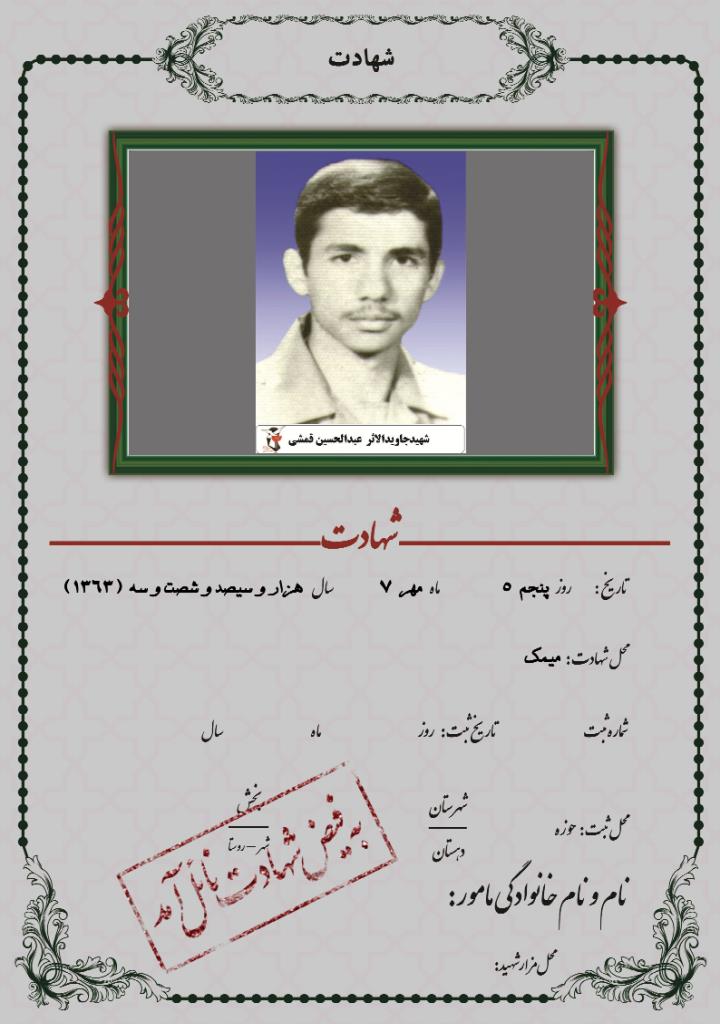 شهادت
شهید جاویدالاثر عبدالحسین قمشی
شهادت
تاریخ: روز پنجم ۵ ماه مهر ۷ سال هزار و سیصد و شصت و سه (۱۳۶۳)
محل شهادت: میمک
شماره ثبت تاریخ ثبت: روز ماه سال
محل ثبت: حوزه شهرستان بخش
دهستان شهر-روستا
به فیض شهادت نائل آمد
نام و نام خانوادگی مامور:
محل مزار شهید: